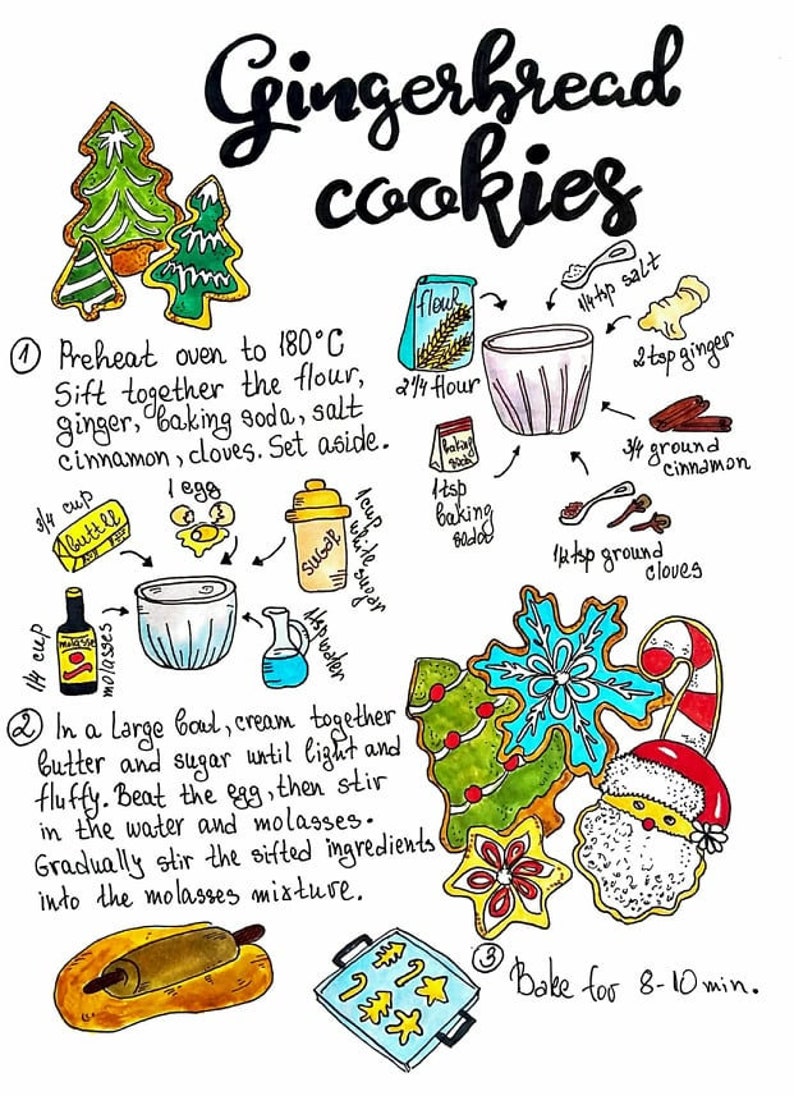 Gingerbread
cookies
flour
2 1/4 flour
1/4 tsp salt
2 tsp ginger
3/4 ground
cinnamon
baking
soda
1 tsp
baking
soda
1/2 tsp ground
cloves
① Preheat oven to 180°C
Sift together the flour,
ginger, baking soda, salt
cinnamon, cloves. Set aside.
3/4 cup
butter
1 egg
SUGAR
1 cup
white
sugar
1/4 cup
molasse
molasses
1 tsp water
② In a large bowl, cream together
butter and sugar until light and
fluffy. Beat the egg, then stir
in the water and molasses.
Gradually stir the sifted ingredients
into the molasses mixture.
③ Bake for 8-10 min.